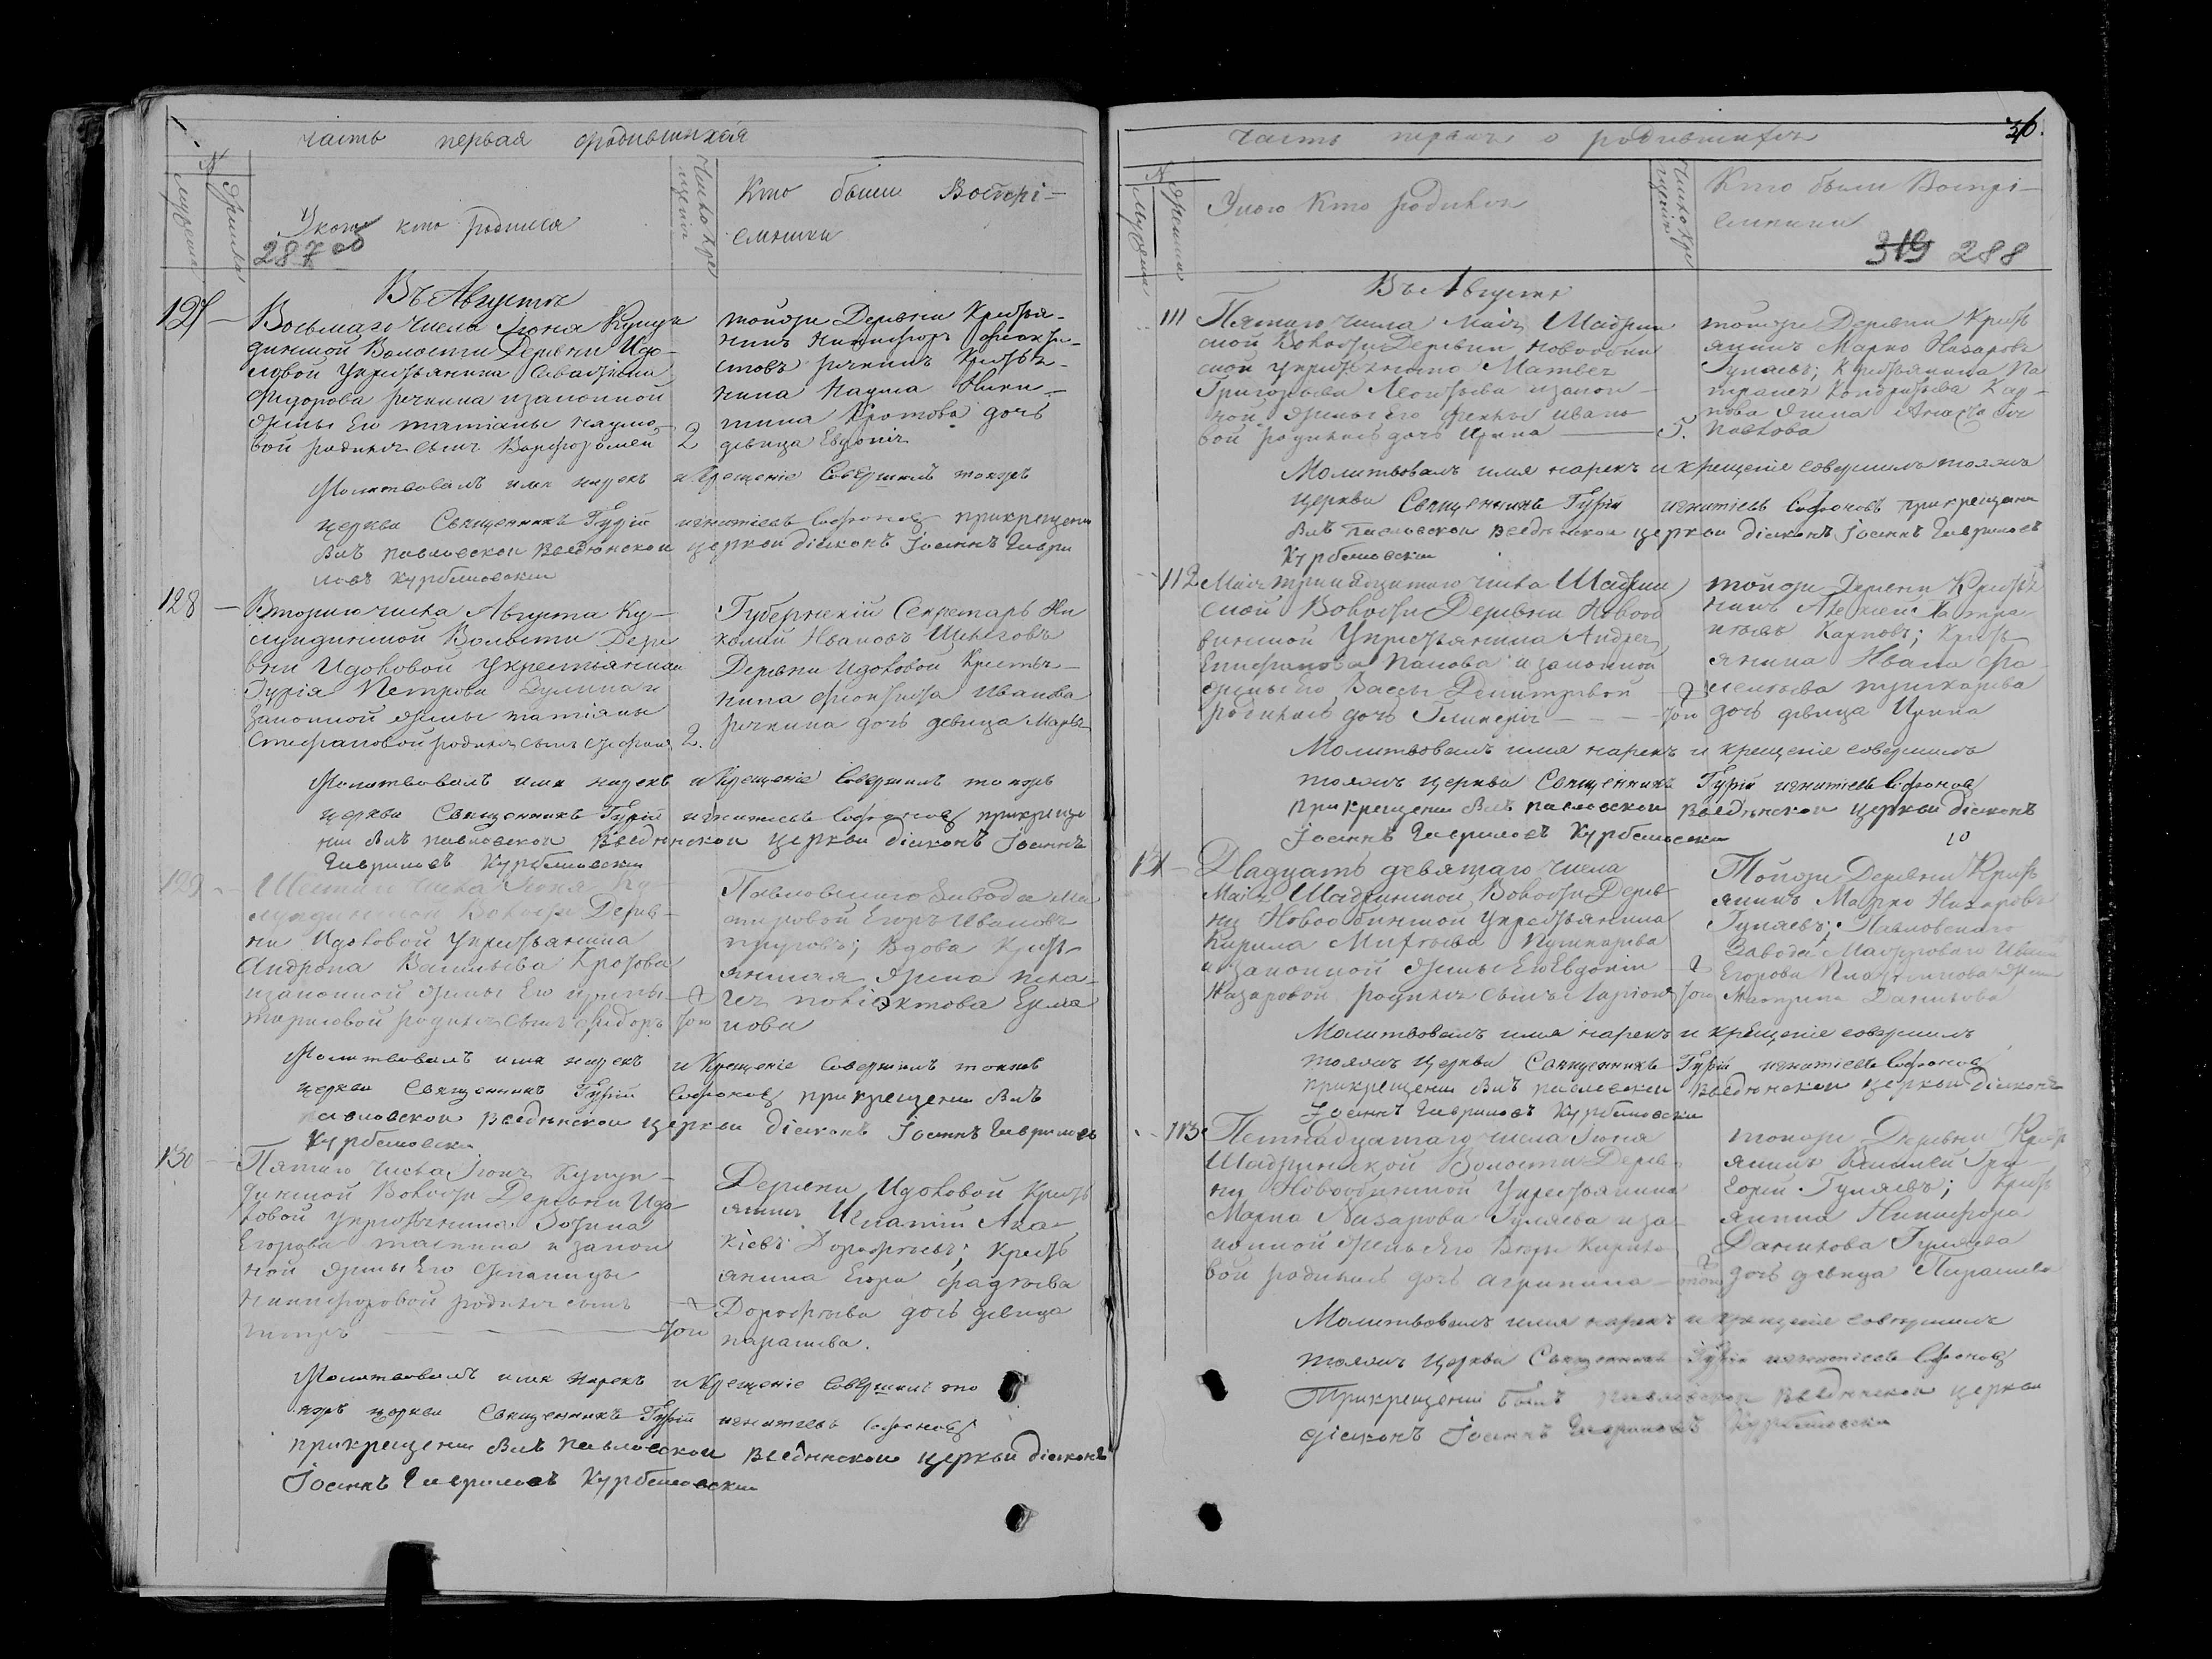 часть первая о родившихся
№
Мужеска
Женска
У кого кто родился
Число кре
щенія
Кто были Воспрі-
емники
287 об
Въ Августе
127 — Восьмаго числа Іюня Кулун
динской Волости Деревни Идо
ловой у крестьянина Севастьяна
Федорова Речкина и законной
жены Его татіаны наумо
вой родился сынъ Варфоломей 2
тойже Деревни Крестья-
нинъ Никифоръ Феокти-
стовъ речкинъ Крестья-
нина Наума Ники-
тина Кротова дочь
девица Евдокія
Молитвовалъ имя нарекъ и Крещеніе Совершилъ тоже
церкви Священникъ Гурій игнатіевъ Софоновъ при крещени
былъ павловской введенской церкви діаконъ Іоаннъ Гаври
ловъ Курбановски
128 — Втораго числа Августа Ку-
лундинской Волости Дере
вни Идоловой у крестьянина
Гурія Петрова и
законной жены татіаны
Стефановой родился сынъ Стефанъ 2.
Губернскій Секретарь Ни
колай Ивановъ Щегловъ
Деревни Идоловой Крестья-
нина Феоктиста Иванова
речкина дочь девица Марѳа
Молитвовалъ имя нарекъ и Крещеніе Совершилъ тоже
церкви Священникъ Гурій игнатіевъ Софоновъ при креще
нии былъ павловской Введенской церкви діаконъ Іоаннъ
Гавриловъ Курбановски
129 — Шестаго числа Іюня Ку-
лундинской Волости Дерев-
ни Идоловой у крестьянина
Андрона Васильева Кротова
и законной жены Его ирины
родился сынъ Федоръ 7го
Павловскаго Завода Ма
стеровой Егоръ Ивановъ
вдова Крестья
янская жена Пела-
гея
нова
Молитвовалъ имя нарекъ и Крещеніе Совершилъ тоже
церкви Священникъ Гурій Софоновъ при крещени былъ
павловской введенской церкви діаконъ Іоаннъ Гавриловъ
Курбановски
130 — Пятаго числа Іюня Кулун-
динской Волости Деревни Идо
ловой у крестьянина Зотина
Егорова и закон
ной жены Его Степаниды
Никифоровой родился сынъ
петръ 7го
Деревни Идоловой Кресть
янинъ Игнатій Ака-
кіевъ Дорофеевъ; Кресть
янина Егора Фадеева
Дорофеева дочь девица
параскева.
Молитвовалъ имя нарекъ и Крещеніе Совершилъ то
же церкви Священникъ Гурій игнатіевъ Софоновъ
при крещени былъ павловской введенской церкви діаконъ
Іоаннъ Гавриловъ Курбановски
часть первая о родившихся
36.
№
Мужеска
Женска
У кого Кто родился
Число кре
щенія
Кто были Воспрі-
емники
319 288
Въ Августе
111 Пятаго числа Мая Шадрин
ской Волости Деревни новообин
ской у крестьянина Матвея
Григорьева Леонтьева и закон-
ной жены его Феклы ивано
вой родилась дочь Ирина 5.
тойже Деревни Кресть
янинъ Марко Назаровъ
Гуляевъ; Крестьянина Па
Кондратьева Кар-
пова жена Анастасія
Павлова
Молитвовалъ имя нарекъ и крещеніе совершилъ тояжъ
церкви Священникъ Гурій игнатіевъ Софоновъ при крещени
былъ Павловской введенской церкви діаконъ Іоаннъ Гавриловъ
Курбановски
112 Мая тринадцатаго числа Шадрин
ской Волости Деревни Новооб
инской у крестьянина Андрея
Епифанова Панова и законной
жены его Вассы Димитріевой
родилась дочь Гликерія 7го
тойже Деревни Крестья
нинъ Алексей
Карповъ; Кресть-
янина Ивана
пушкарева
дочь девица Ирина
Молитвовалъ имя нарекъ и крещеніе совершилъ
тояжъ церкви Священникъ Гурій игнатіевъ Софоновъ
при крещени былъ павловской введенской церкви діаконъ
Іоаннъ Гавриловъ Курбановски
10
131 — Двадцать девятаго числа
Мая Шадринской Волости Дерев
ни Новообинской у крестьянина
Кирила Михеева Пушкарева
и законной жены Его Евдокіи
Назаровой родился сынъ Иларіонъ 7го
Тойже Деревни Кресть
янинъ Марко Назаровъ
Гуляевъ; Павловскаго
Завода Мастероваго Ивана
Егорова жена
Матрена Данилова
Молитвовалъ имя нарекъ и крещеніе совершилъ
тояжъ церкви Священникъ Гурій игнатіевъ Софоновъ
при крещени былъ павловской введенской церкви діаконъ
Іоаннъ Гавриловъ Курбановски
113 Пятнадцатаго числа Іюня
Шадринской Волости Дерев-
ни Новообинской у крестьянина
Марка Назарова Гуляева и за-
конной жены Его Кирило
вой родилась дочь Агрипина
тойже Деревни Кресть
янинъ Василей Гри
горій Гуляевъ; Кресть
янина Никифора
Данилова Гуляева
дочь девица Параскева
Молитвовалъ имя нарекъ и крещеніе совершилъ
тояжъ церкви Священникъ Гурій игнатіевъ Софоновъ
При крещении былъ павловской введенской церкви
діаконъ Іоаннъ Гавриловъ Курбановски